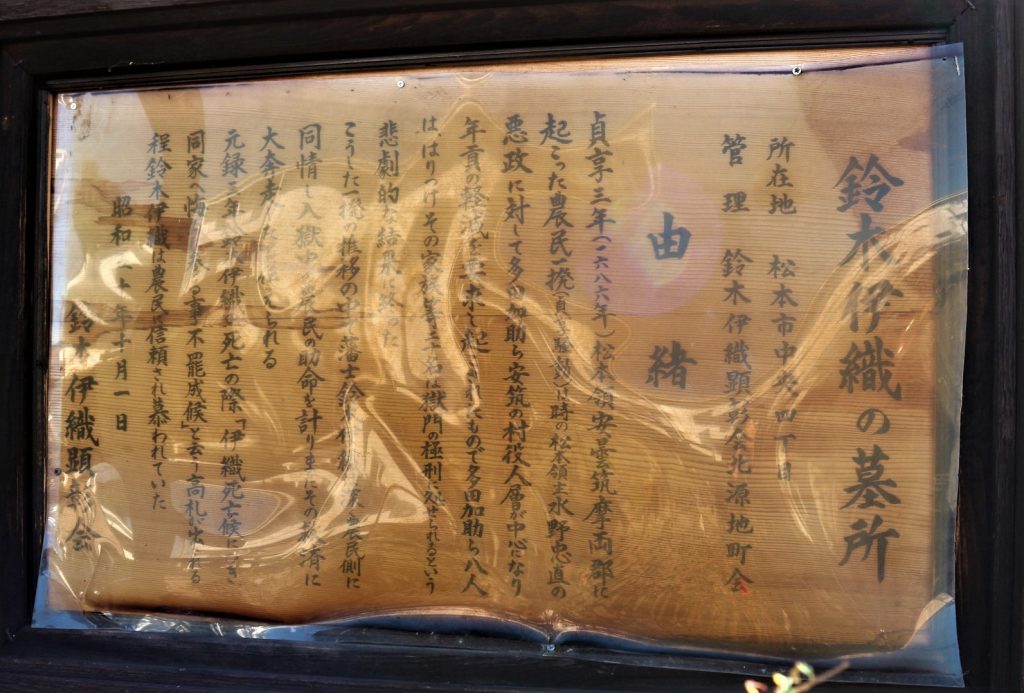 鈴木伊織の墓所
所在地 松本市中央四丁目
管理 鈴木伊織顕彰会 北源地町会
由緒
貞享三年(一六八六年)松本領安曇筑摩両郡に
起こった農民一揆(貞享騒動)は時の松本領主水野忠直の
悪政に対して多田加助ら安筑の村役人層が中心になり
年貢の軽減を要求して起こされたもので多田加助ら八人
は、はりつけその家族等二十名は獄門の極刑に処せられるという
悲劇的な結果に終った
こうした一揆の推移の中で藩士鈴木伊織 農民側に
同情し入獄中の農民の助命を計りまたその救済に
大奔走したと伝えられる
元録 年鈴木伊織が死亡の際「伊織死亡候につき
同家へ悔 参る事不罷成候」と云う高札が出される
程鈴木伊織は農民に信頼され慕われていた
昭和 十年十月一日
鈴木伊織顕彰会